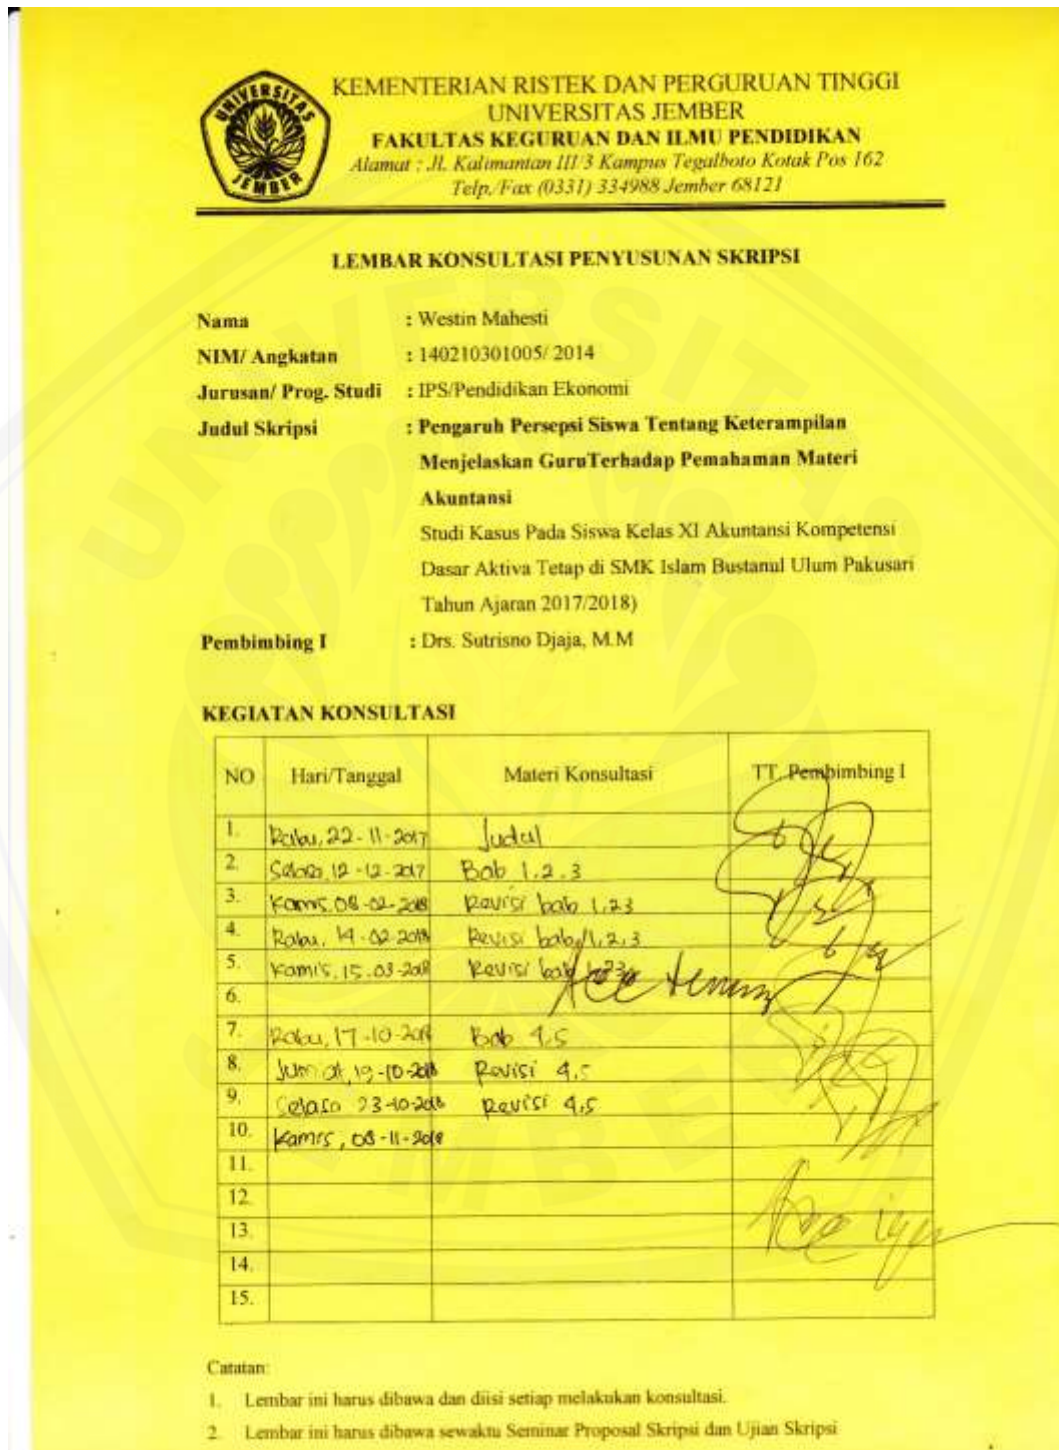 KEMENTERIAN RISTEK DAN PERGURUAN TINGGI
UNIVERSITAS JEMBER
FAKULTAS KEGURUAN DAN ILMU PENDIDIKAN
Alamat : Jl. Kalimantan III/3 Kampus Tegalboto Kotak Pos 162
Telp./Fax (0331) 334988 Jember 68121
UNIVERSITAS JEMBER
LEMBAR KONSULTASI PENYUSUNAN SKRIPSI
Nama : Westin Mahesti
NIM/ Angkatan : 140210301005/ 2014
Jurusan/ Prog. Studi : IPS/Pendidikan Ekonomi
Judul Skripsi : Pengaruh Persepsi Siswa Tentang Keterampilan
Menjelaskan GuruTerhadap Pemahaman Materi
Akuntansi
Studi Kasus Pada Siswa Kelas XI Akuntansi Kompetensi
Dasar Aktiva Tetap di SMK Islam Bustanul Ulum Pakusari
Tahun Ajaran 2017/2018)
Pembimbing I : Drs. Sutrisno Djaja, M.M
KEGIATAN KONSULTASI
NO Hari/Tanggal Materi Konsultasi TT. Pembimbing I
1. Rabu, 22-11-2017 Judul
2. Selasa, 12-12-2017 Bab 1.2.3
3. Kamis, 08-02-2018 Revisi bab 1,2,3
4. Rabu, 14-02-2018 Revisi bab 1,2,3
5. Kamis, 15-03-2018 Revisi bab 1,2,3
Acc
6.
7. Rabu, 17-10-2018 Bab 4,5
8. Jumat, 19-10-2018 Revisi 4,5
9. Selasa 23-10-2018 Revisi 4,5
10. Kamis, 08-11-2018
11.
12.
13.
14.
15.
Catatan:
1. Lembar ini harus dibawa dan diisi setiap melakukan konsultasi.
2. Lembar ini harus dibawa sewaktu Seminar Proposal Skripsi dan Ujian Skripsi
UNIVERSITAS JEMBER